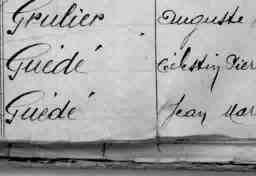 Grulier Auguste
Guédé Célestin Pier
Guédé Jean Mar